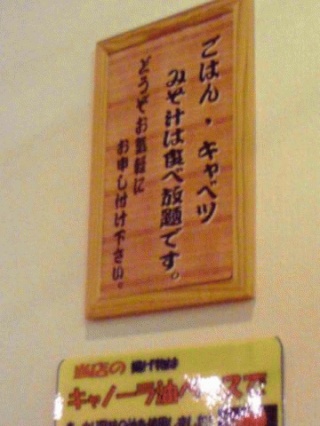 ごはん・キャベツ
みそ汁は食べ放題です。
どうぞお気軽に
お申し付け下さい。
当店の 揚げ物は
キャノーラ油